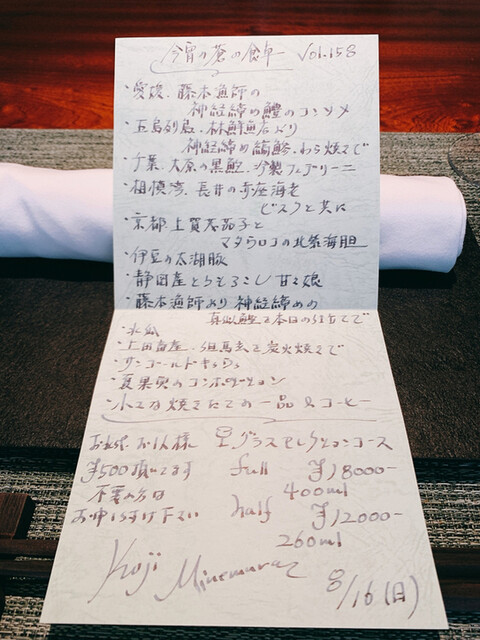 今宵の蒼の食卓 Vol.158
・愛媛、藤本漁師の
神経締め鱧のコンソメ
・五島列島、林鮮魚店より
神経締め縞鯵、わら焼きで
・千葉、大原の黒鮑、冷製フェデリーニ
・相模湾、長井の赤座海老
ビスクと共に
・京都上賀茂茄子と
マタウロコの北紫海胆
・伊豆の太湖豚
・静岡産とうもろこし甘々娘
・藤本漁師より神経締めの
真似鰹を本日の仕立てで
・水瓜
・上田畜産、但馬玄を炭火焼きで
・サンゴールドキウイ
・夏果実のコンポジション
・小さな焼きたての一品 & コーヒー
お水代 お1人様
¥500頂いてます
不要の方は
お申し付け下さい
グラスセレクションコース
full ¥18000-
400ml
half ¥12000-
260ml
Koji Minemura
8/16(日)